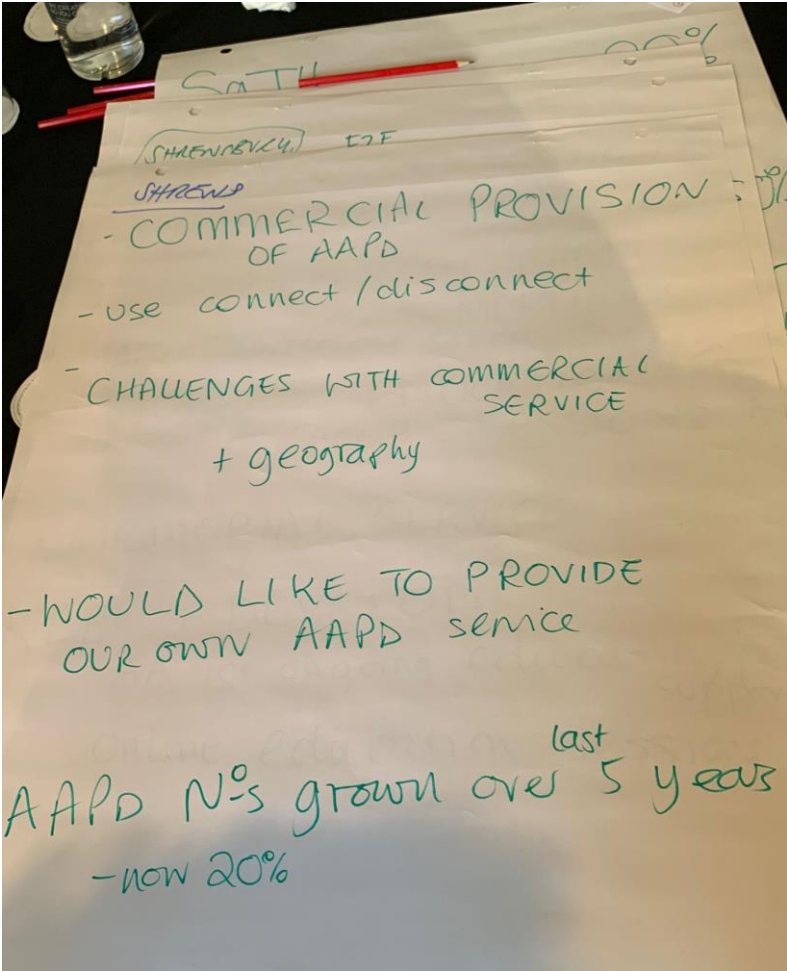 SaTH
SHREWSBURY.
SHREWS
- COMMERCIAL PROVISION
OF AAPD
- use connect / disconnect
- CHALLENGES WITH COMMERCIAL
SERVICE
+ geography
- WOULD LIKE TO PROVIDE
OUR OWN AAPD service
last
AAPD Nos grown over 5 years
- now 20%